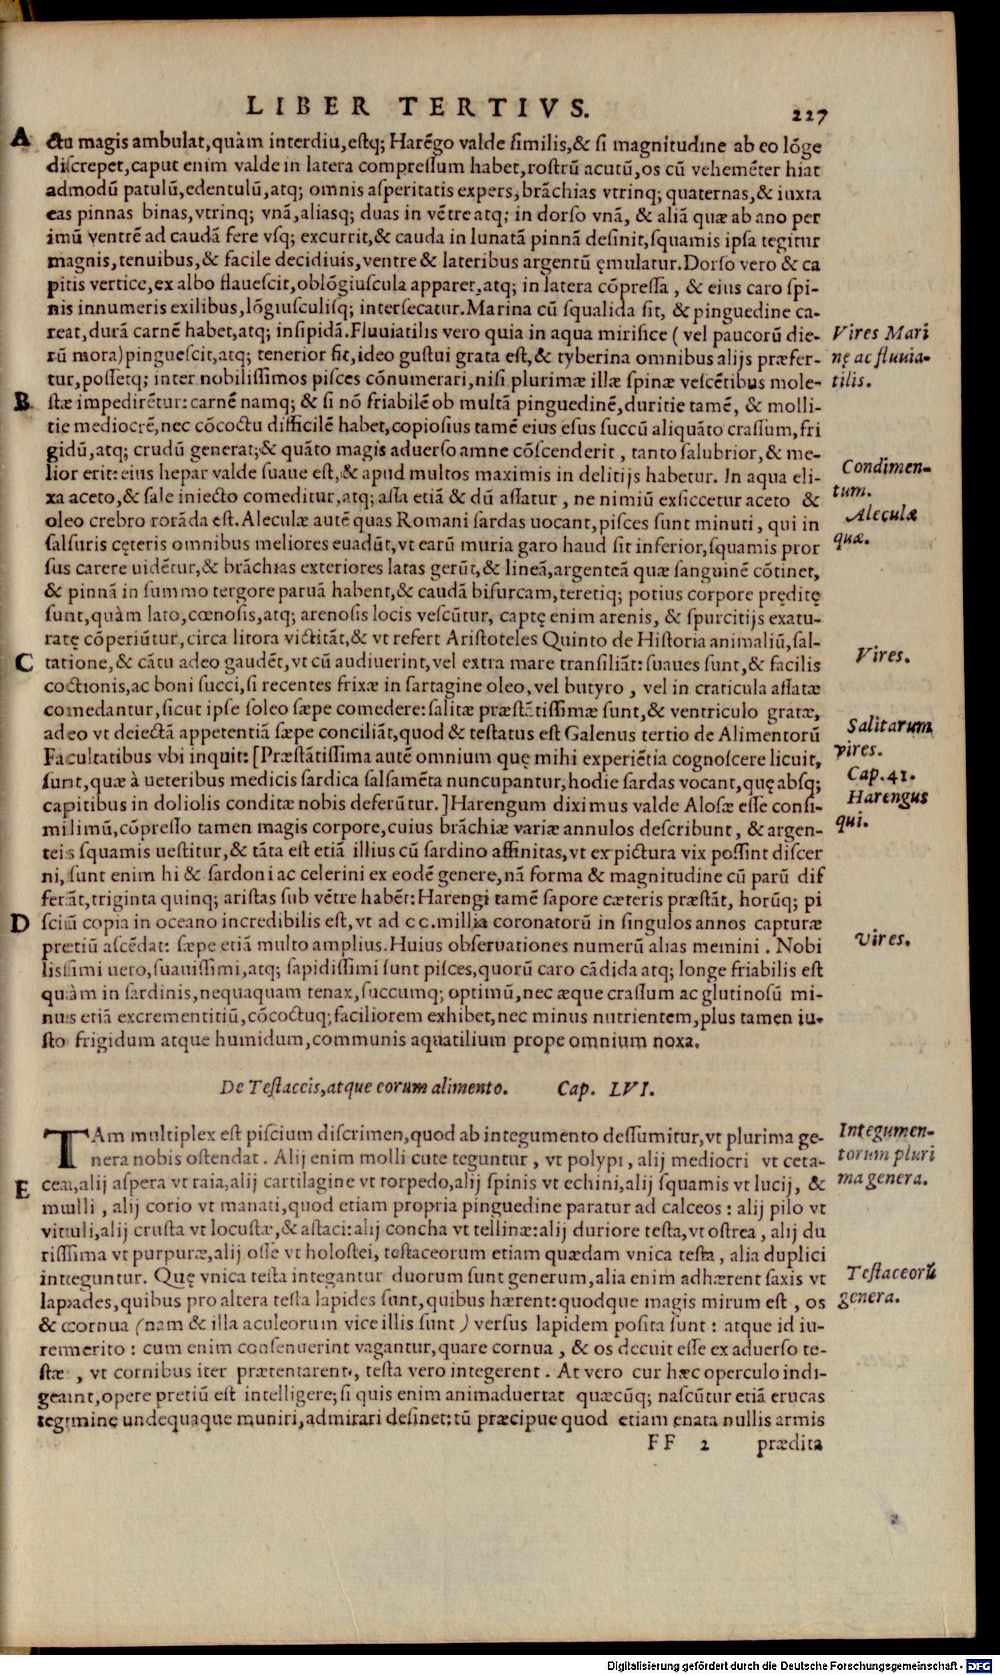 LIBER TERTIVS.
227
A
ctu magis ambulat,quàm interdiu,estq; Harẽgo valde similis,& si magnitudine ab eo lõge
discrepet,caput enim valde in latera compressum habet,rostrũ acutũ,os cũ vehemẽter hiat
admodũ patulũ,edentulũ,atq; omnis asperitatis expers,brãchias vtrinq; quaternas,& iuxta
eas pinnas binas,vtrinq; vnã,aliasq; duas in vẽtre atq; in dorso vnã, & aliã quæ ab ano per
imũ ventrẽ ad caudã fere vsq; excurrit,& cauda in lunatã pinnã desinit,squamis ipsa tegitur
magnis,tenuibus,& facile decidiuis,ventre & lateribus argentũ ęmulatur.Dorso vero & ca
pitis vertice,ex albo flauescit,oblõgiuscula apparet,atq; in latera cõpressa , & eius caro spi-
nis innumeris exilibus,lõgiusculisq; intersecatur.Marina cũ squalida sit, & pinguedine ca-
reat,durã carnẽ habet,atq; insipidã.Fluuiatilis vero quia in aqua mirifice ( vel paucorũ die-
rũ mora)pinguescit,atq; tenerior fit,ideo gustui grata est,& tyberina omnibus alijs præfer-
tur,possetq; inter nobilissimos pisces cõnumerari,nisi plurimæ illæ spinæ vescẽtibus mole-
B
stæ impedirẽtur:carnẽ namq; & si nõ friabilẽ ob multã pinguedinẽ,duritie tamẽ, & molli-
tie mediocrẽ,nec cõcoctu difficilẽ habet,copiosius tamẽ eius esus succũ aliquãto crassum,fri
gidũ,atq; crudũ generat;& quãto magis aduerso amne cõscenderit , tanto salubrior,& me-
lior erit:eius hepar valde suaue est,& apud multos maximis in delitijs habetur. In aqua eli-
xa aceto,& sale iniecto comeditur,atq; assa etiã & dũ assatur , ne nimiũ exsiccetur aceto &
oleo crebro rorãda est.Aleculæ autẽ quas Romani sardas uocant,pisces sunt minuti , qui in
salsuris cęteris omnibus meliores euadũt,vt earũ muria garo haud sit inferior,squamis pror
sus carere uidẽtur,& brãchias exteriores latas gerũt,& lineã,argenteã quæ sanguinẽ cõtinet,
& pinnã in summo tergore paruã habent,& caudã bifurcam,teretiq; potius corpore prędítę
sunt,quàm lato,cœnosis,atq; arenosis locis vescũtur, captę enim arenis, & spurcitijs exatu-
ratę cõperiũtur,circa litora victitãt,& vt refert Aristoteles Quinto de Historia animaliũ,sal-
C
tatione,& cãtu adeo gaudẽt,vt cũ audiuerint,vel extra mare transiliãt:suaues sunt,& facilis
coctionis,ac boni succi,si recentes frixæ in sartagine oleo,vel butyro , vel in craticula assatæ
comedantur,sicut ipse soleo sæpe comedere:salitæ præstãtissimæ sunt,& ventriculo gratæ,
adeo vt deiectã appetentiã sæpe conciliãt,quod & testatus est Galenus tertio de Alimentorũ
Facultatibus vbi inquit:[Præstãtissima autẽ omnium quę mihi experiẽtia cognoscere licuit,
sunt,quæ à ueteribus medicis sardica salsamẽta nuncupantur,hodie sardas vocant,quę absq;
capitibus in doliolis conditæ nobis deferũtur.]Harengum diximus valde Alosæ esse consi-
milimũ,cõpresso tamen magis corpore,cuius brãchiæ variæ annulos describunt, & argen-
teis squamis uestitur,& tãta est etiã illius cũ sardino affinitas,vt ex pictura vix possint discer
ni,sunt enim hi & sardoni ac celerini ex eodẽ genere,nã forma & magnitudine cũ parũ dif
ferãt,triginta quinq; aristas sub vẽtre habẽt:Harengi tamẽ sapore cæteris præstãt, horũq; pi
D
sciũ copia in oceano incredibilis est,vt ad cc.millia coronatorũ in singulos annos capturæ
pretiũ ascẽdat: sæpe etiã multo amplius.Huius obseruationes numerũ alias memini . Nobi
lissimi uero,suauissimi,atq; sapidissimi sunt pisces,quorũ caro cãdida atq; longe friabilis est
quàm in sardinis,nequaquam tenax,succumq; optimũ,nec æque crassum ac glutinosũ mi-
nus etiã excrementitiũ,cõcoctuq;faciliorem exhibet,nec minus nutrientem,plus tamen iu-
sto frigidum atque humidum,communis aquatilium prope omnium noxa.
Vires Mari
nę ac fluuia-
tilis.
Condimen-
tum.
Aleculæ
quæ.
Vires.
Salitarum
vires.
Cap.41.
Harengus
qui.
Vires.
De Testaceis,atque eorum alimento. Cap. LVI.
TAm multiplex est piscium discrimen,quod ab integumento dessumitur,vt plurima ge-
nera nobis ostendat . Alij enim molli cute teguntur , vt polypi , alij mediocri vt ceta-
E
cea,alij aspera vt raia,alij cartilagine vt torpedo,alij spinis vt echini,alij squamis vt lucij, &
mulli , alij corio vt manati,quod etiam propria pinguedine paratur ad calceos : alij pilo vt
vituli,alij crusta vt locustæ,& astaci:alij concha vt tellinæ:alij duriore testa,vt ostrea , alij du
rissima vt purpuræ,alij osse vt holostei, testaceorum etiam quædam vnica testa , alia duplici
integuntur. Quę vnica testa integantur duorum sunt generum,alia enim adhærent saxis vt
lapades,quibus pro altera testa lapides sunt,quibus hærent:quodque magis mirum est , os
& cornua (nam & illa aculeorum vice illis sunt ) versus lapidem posita sunt : atque id iu-
remerito : cum enim consenuerint vagantur,quare cornua , & os decuit esse ex aduerso te-
stæ , vt cornibus iter prætentarent, testa vero integerent . At vero cur hæc operculo indi-
geant,opere pretiũ est intelligere;si quis enim animaduertat quæcũq; nascũtur etiã erucas
tegmine undequaque muniri,admirari desinet:tũ præcipue quod etiam enata nullis armis
Integumen-
torum pluri
ma genera.
Testaceorũ
genera.
FF 2 prædita
Digitalisierung gefördert durch die Deutsche Forschungsgemeinschaft - DFG